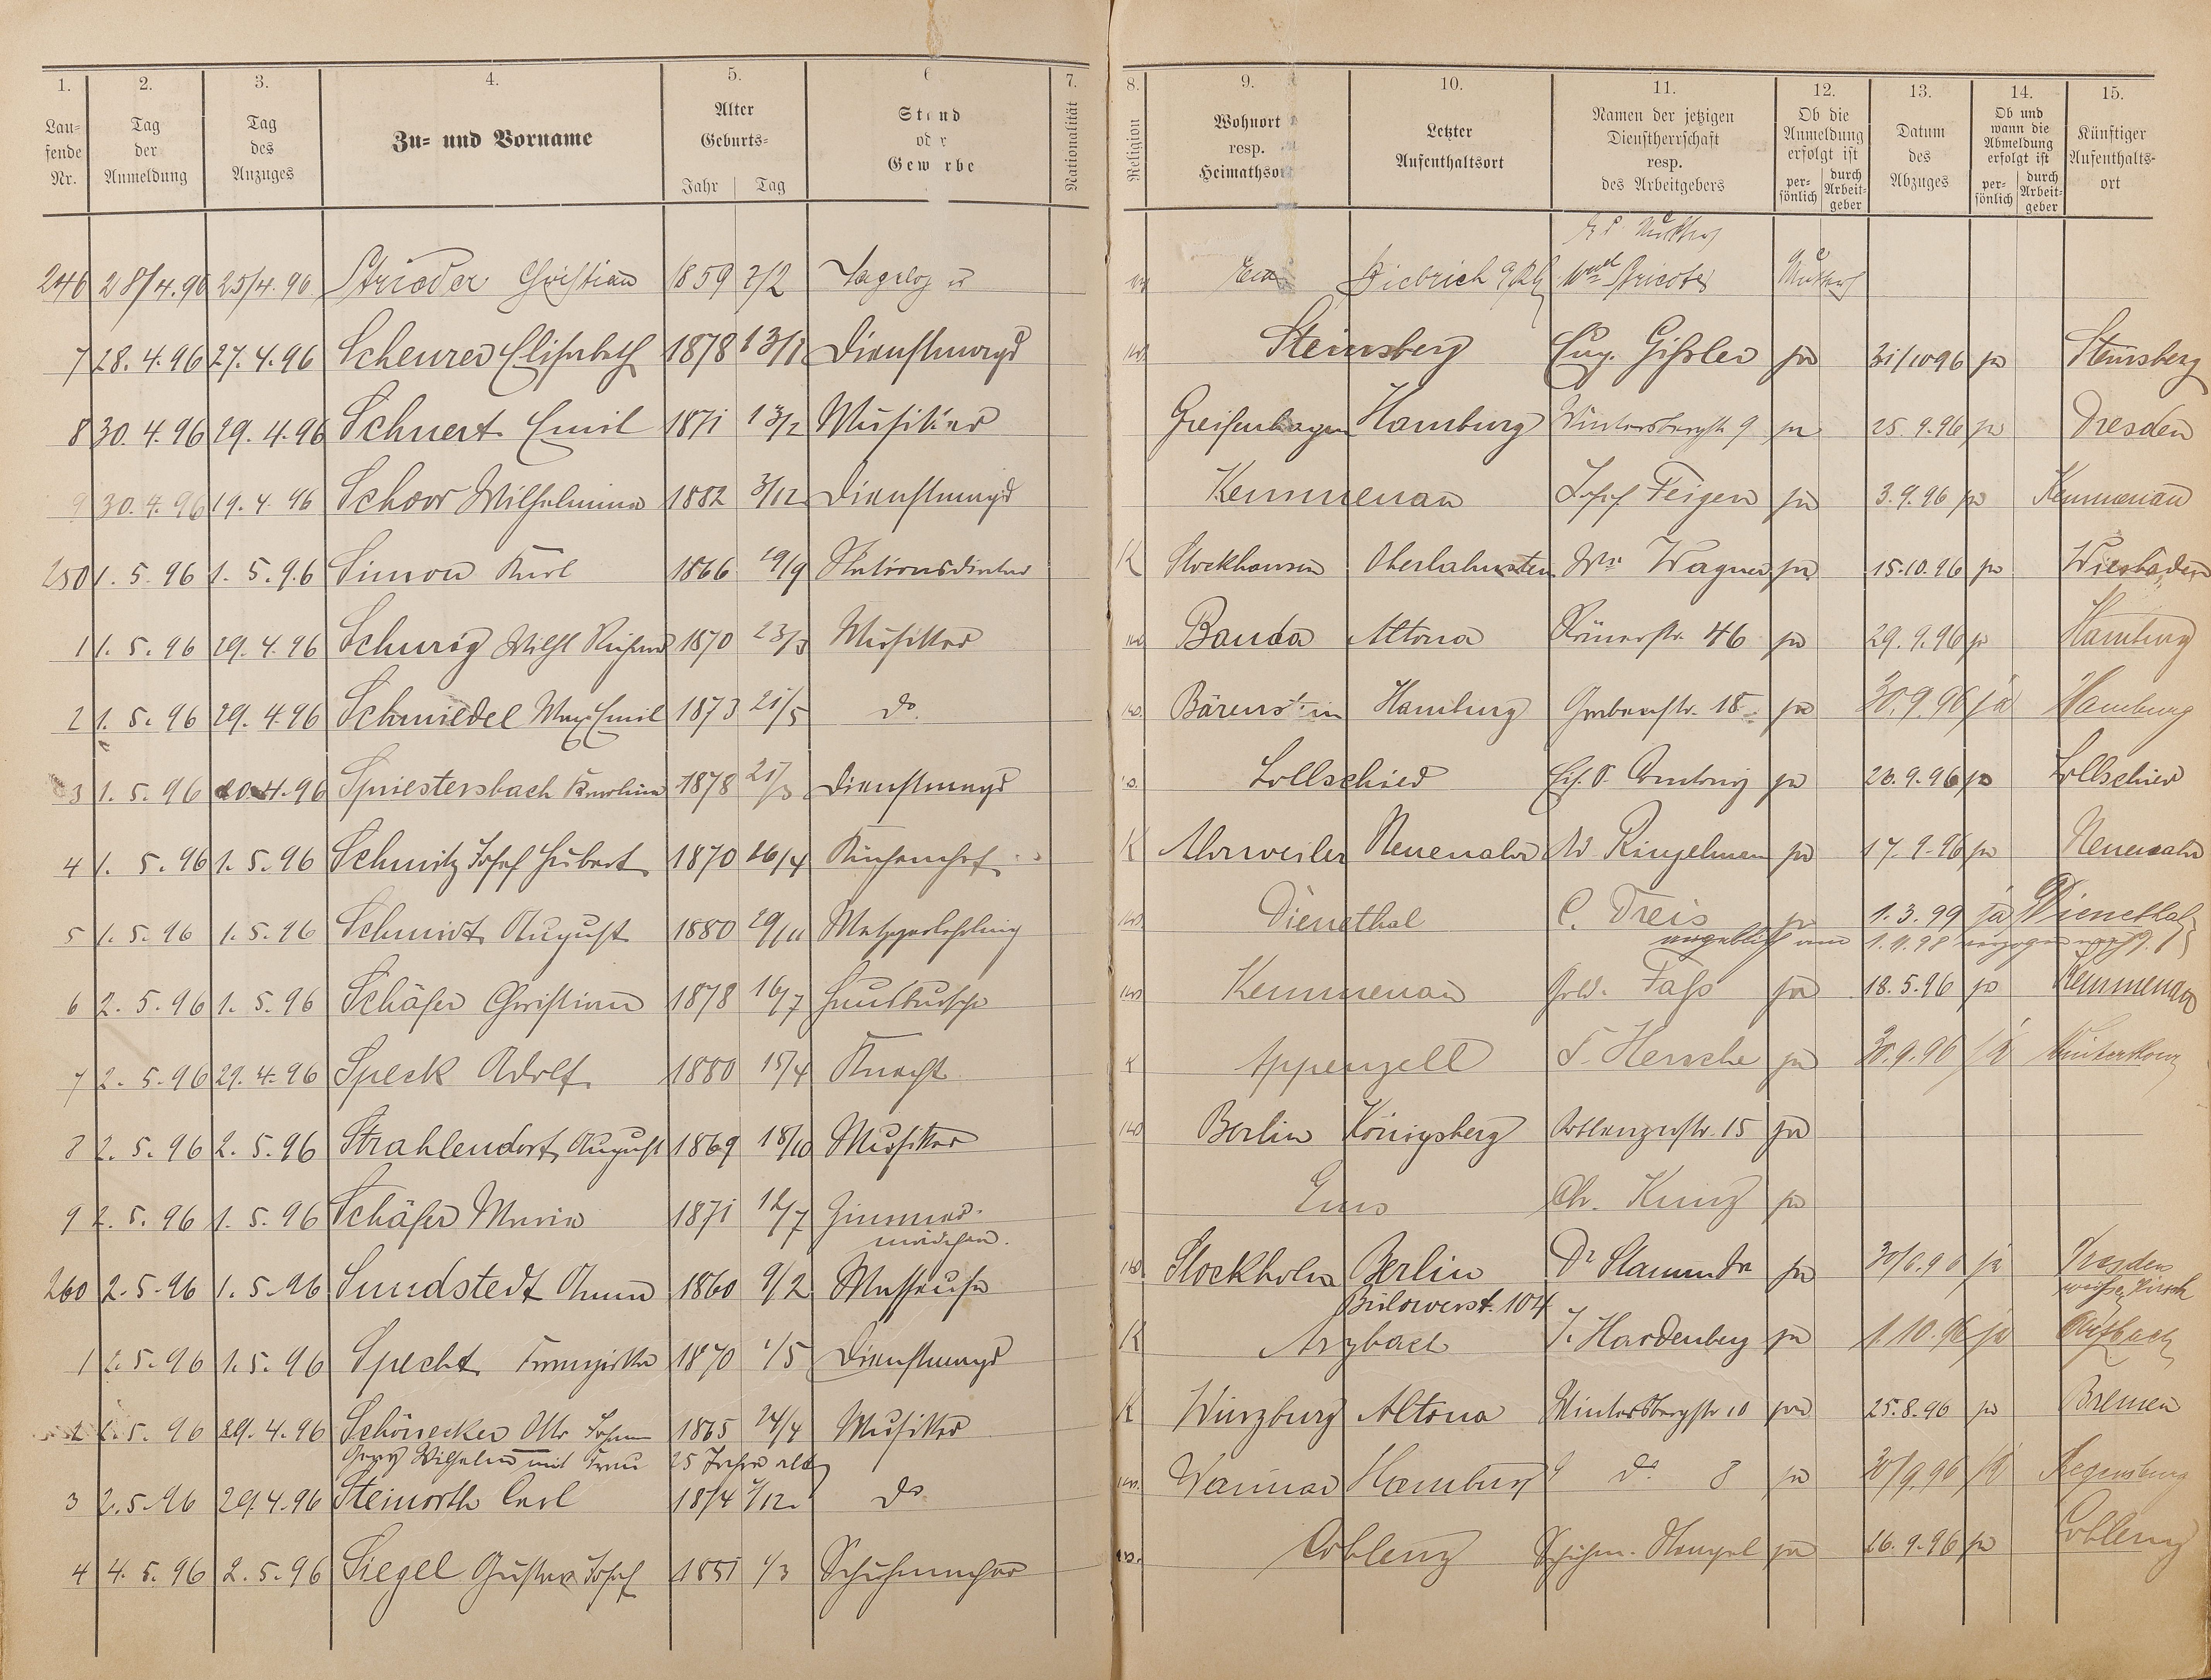 1. 2. 3. 4. 5. 6 7. 8. 9. 10. 11. 12. 13. 14. 15.
Lau=
fende
Nr.
Tag
der
Anmeldung
Tag
des
Anzuges
Zu= und Vorname
Alter
Geburts=
Jahr Tag
Stand
oder
Gewerbe
Nationalität
Religion
Wohnort
resp.
Heimathsort
Letzter
Aufenthaltsort
Namen der jetzigen
Dienstherrschaft
resp.
des Arbeitgebers
Ob die
Anmeldung
erfolgt ist
per=
sönlich
durch
Arbeit=
geber
Datum
des
Abzuges
Ob und
wann die
Abmeldung
erfolgt ist
per=
sönlich
durch
Arbeit=
geber
Künftiger
Aufenthalts=
ort
246 28/4.96 25/4.96 Strieder Christian 1859 7/2 Ems Biebrich
7 28.4.96 27.4.96 Scheurer Elisabeth 1878 Dienstmagd Steinsberg Eug. Gißler ja 31/10 96 ja Steinsberg
8 30.4.96 29.4.96 Schnert Emil 1871 13/2 Musiker Greifenhagen Hamburg Wintersbergstr. 9 ja 25.9.96 ja Dresden
9 30.4.96 19.4.96 Schoor Wilhelmine 1882 3/12 Dienstmagd Kemmenau Josef Feigen ja 3.9.96 ja Kemmenau
250 1.5.96 1.5.96 Simon Karl 1866 19/9 K Stockhausen Oberlahnstein Ww Wagner ja 15.10.96 ja Wiesbaden
1 1.5.96 29.4.96 Schurig Wilh Richard 1870 23/3 Musiker Bauda Altona Römerstr. 46 ja 29.9.96 ja Hamburg
2 1.5.96 29.4.96 Schmiedel Max Emil 1873 21/5 do. Bärenstein Hamburg Grabenstr. 18 ja 30.9.96 ja Hamburg
3 1.5.96 20.4.96 Spriestersbach Karoline 1878 21/3 Dienstmagd Lollschied ja 20.9.96 ja Lollschied
4 1.5.96 1.5.96 Schmitz Josef Hubert 1870 26/4 Küchenchef K Ahrweiler Neuenahr W Ringelmann ja 17.9.96 ja Neuenahr
5 1.5.96 1.5.96 Schmidt August 1880 29/11 Metzgerlehrling Dienethal C. Treis ja 1.3.99 ja Dienethal
angeblich am 1.11.98
6 2.5.96 1.5.96 Schäfer Christian 1878 16/7 Hausbursche Kemmenau Faß ja 18.5.96 ja Kemmenau
7 2.5.96 29.4.96 Speck Adolf 1880 15/4 Knecht K Appenzell F. Hersche ja 30.9.96 ja
8 2.5.96 2.5.96 Strahlendorf August 1869 18/10 Musiker Berlin Königsberg Coblenzerstr. 15 ja
9 2.5.96 1.5.96 Schäfer Maria 1871 12/7 Zimmer- Ems Chr. Kunz ja
mädchen.
260 2.5.96 1.5.96 Sundstedt Anna 1860 9/2 Masseuse Stockholm Berlin Dr Stammler ja ja Dresden
Bülowerst. 104 weißer Hirsch
1 2.5.96 1.5.96 Specht Franziska 1870 1/5 Dienstmagd K Arzbach J. Hardenberg ja 1.10.96 ja Arzbach
2 2.5.96 29.4.96 Schönecker Otto Johann 1865 24/4 Musiker K Würzburg Altona Wintersbergstr 10 ja 25.8.96 ja Bremen
Georg Wilhelm mit Frau 25 Jahre alt
3 2.5.96 29.4.96 Steinorth Carl 1874 do Hamburg do 8 ja 30/9.96 ja Regensburg
4 4.5.96 2.5.96 Siegel Gustav Josef 1851 1/3 Schuhmacher Coblenz ja 16.9.96 ja Coblenz